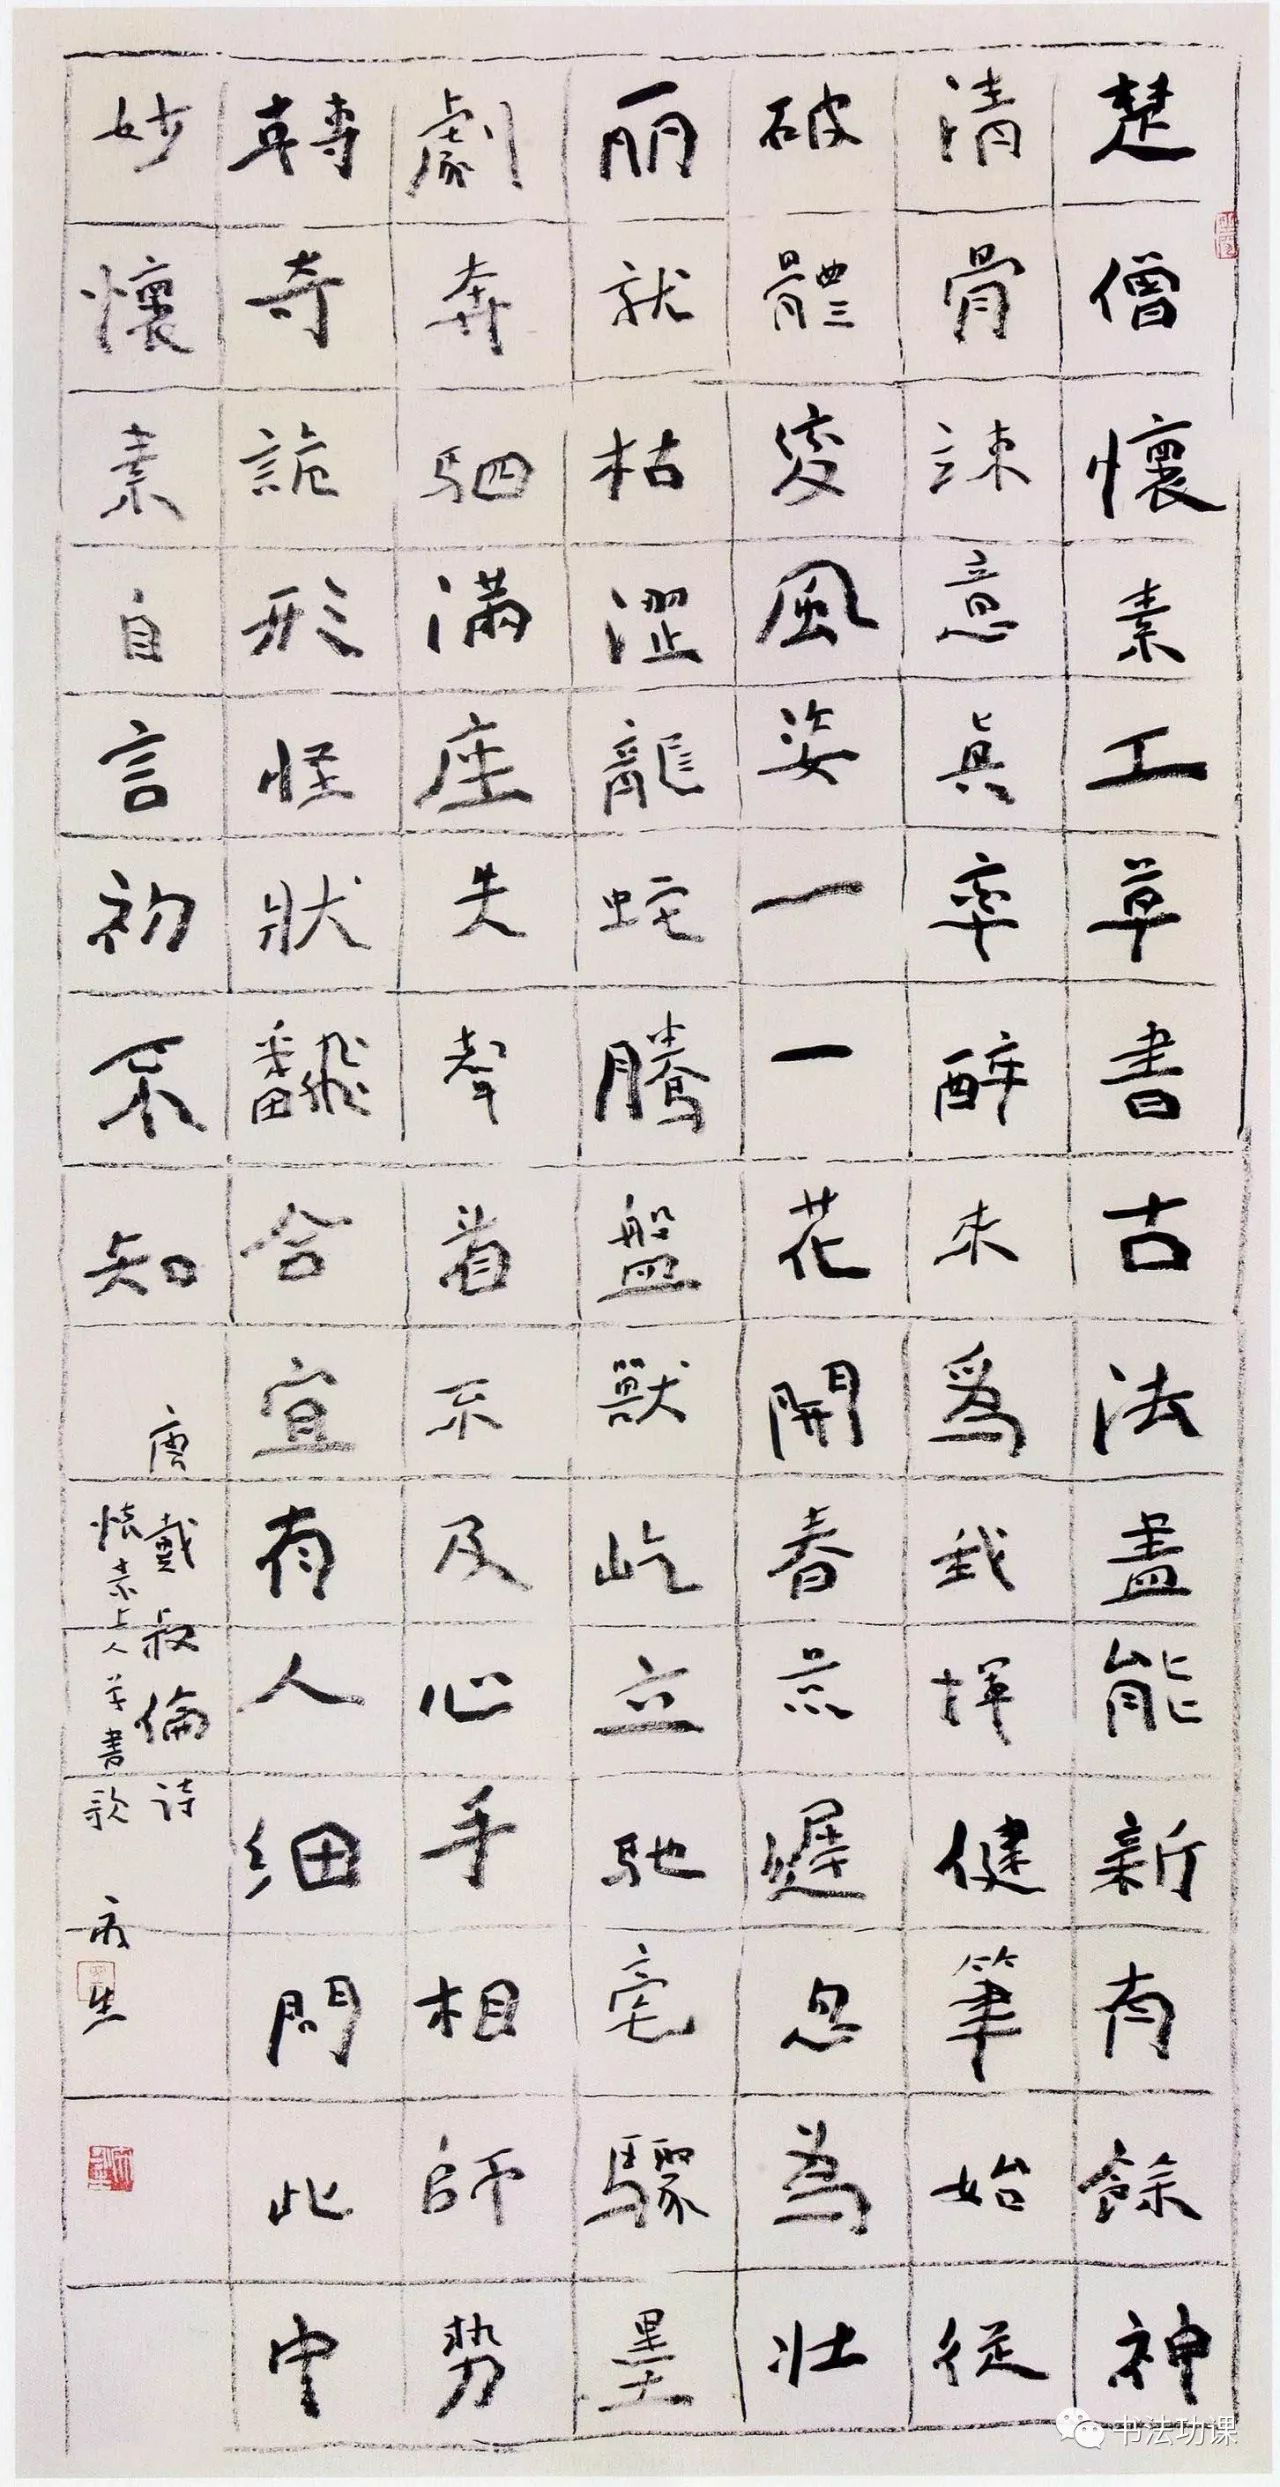 楚僧懷素工草書古法盡能新有餘神
清骨竦意真率醉来爲我揮健筆始從
破體變風姿一一花開春景遲忽為壯
丽就枯澀龍蛇騰盤獸屹立馳毫驟墨
劇奔駟滿座失聲看不及心手相師勢
轉奇詭形怪狀飜合宜有人細問此中
妙懷素自言初不知
唐戴叔倫诗
懷素上人草書歌
书法功课